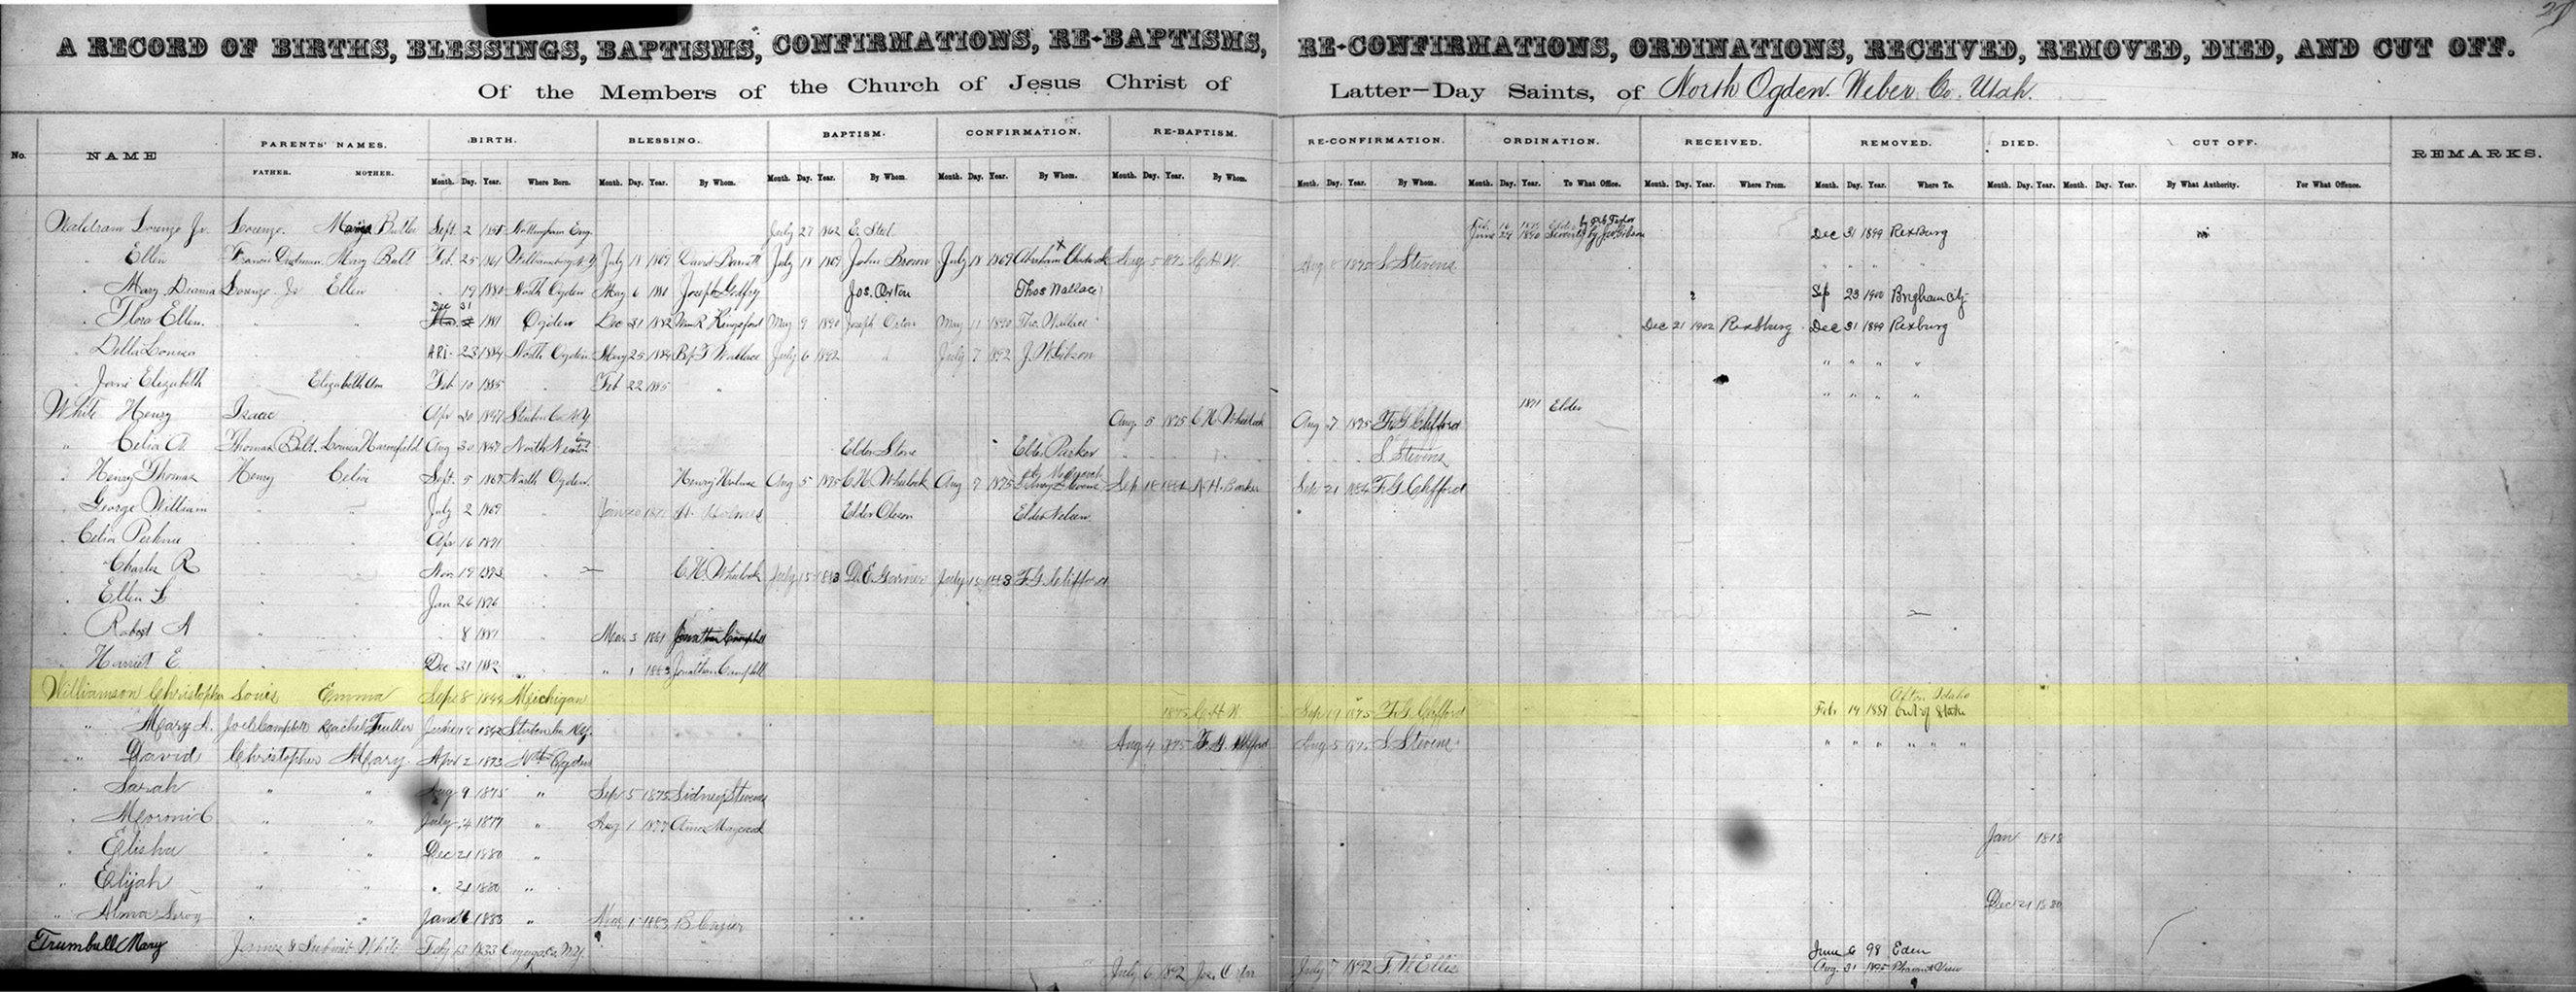 27
A RECORD OF BIRTHS, BLESSINGS, BAPTISMS, CONFIRMATIONS, RE-BAPTISMS, RE-CONFIRMATIONS, ORDINATIONS, RECEIVED, REMOVED, DIED, AND CUT OFF.
Of the Members of the Church of Jesus Christ of Latter-Day Saints, of North Ogden. Weber Co. Utah.
No. NAME PARENTS' NAMES. BIRTH. BLESSING. BAPTISM. CONFIRMATION. RE-BAPTISM. RE-CONFIRMATION. ORDINATION. RECEIVED. REMOVED. DIED. CUT OFF. REMARKS.
FATHER. MOTHER. Month. Day. Year. Where Born. Month. Day. Year. By Whom. Month. Day. Year. By Whom. Month. Day. Year. By Whom. Month. Day. Year. By Whom. Month. Day. Year. By Whom. Month. Day. Year. To What Office. Month. Day. Year. Where From. Month. Day. Year. Where To. Month. Day. Year. Month. Day. Year. By What Authority. For What Offence.
Waldram Lorenzo Jr. Lorenzo. Butler Sept. 2 Nottingham Eng. July 27 1862 Dec 31 1899 Rexburg
" Ellen Mary Balt Feb. 25 1861 Williamsburg N.Y. July 18 1869 David Barnett July 18 1869 John Brown July 18 1869 Aug 5 1875 C.H.W. Aug 1875 S. Stevens " " " "
" Mary Lorenzo Jr Ellen " 19 1880 North Ogden May 6 Joseph Godfrey Jos. Orton Thos Wallace Sep 23 1900 Brigham City
" Flora Ellen. " " Dec 31 1881 Ogden Dec 31 1882 Wm R Kingsford May 9 1890 Joseph Orton May 11 1890 Tho. Wallace Dec 21 1902 Rexburg Dec 31 1899 Rexburg
" Della Louisa " " Apr. 23 1884 North Ogden May 25 1884 Bp T Wallace July 6 1892 " July 7 1892 J. W. Gibson " " " "
" Jane Elizabeth " Elizabeth Ann Feb 10 1885 " Feb 22 1885 " " " " "
White Henry Isaac Apr 20 Steuben Co N.Y. Aug 5 1875 C H Wheelock Aug 7 1875 F.G. Clifford 1871 Elder
" Celia A. Thomas Balt. Louisa Aug 30 1847 North Elder Stone Elder Parker S. Stevens
" Henry Thomas Henry Celia Sept. 5 1867 North Ogden. Henry Holmes Aug 5 1875 C H Wheelock Aug 7 1875 Sep 18 1884 N H. Barker Sep 21 1884 F.G. Clifford
" George William " " July 2 1869 " H. Holmes Elder Oleson Elder Nelson
" Celia Perkins " " Apr 16 1871
" Charles R " " Nov 19 1873 " C. H. Wheelock July 15 1883 D. E. Garner July 15 1883 F G Clifford
" Ellen L " " Jan 26 1876 "
" Robert A " " 8 1881 " Mar 3 1881 Jonathan Campbell
" Harriet E. " " Dec 31 1882 " " 1 1883 Jonathan Campbell
Williamson Christopher Louis Emma Sep 8 1844 Michigan 1875 C.H.W. Sep 19 1875 F.G. Clifford Feb 14 1887 Afton Idaho
Out of Stake
" Mary A. Joel Campbell Rachel Fuller 1842 Steuben Co N.Y. Aug 4 1875 F. G. Clifford Aug 5 1875 S. Stevens " " " " " "
" David Christopher Mary Apr 2 1873 Nth Ogden
" Sarah " " Aug 9 1875 " Sep 5 1875 Sidney Stevens
" Moroni C " " July 4 1877 " Aug 1 1877 Amos Maycock Jan 1878
" Elisha " " Dec 21 1880 "
" Elijah " " " 21 1880 " Dec 21 1880
" Alma Leroy " " Jan 16 1883 " Mar 1 1883 B. Cazier
Trumbull Mary James & Submit White Feb 13 1833 Cayuga Co. N.Y. July 6 1892 Jos. Orton July 7 1892 F. W. Ellis June 6 98 Eden
Aug. 31 1895 Pleasant View